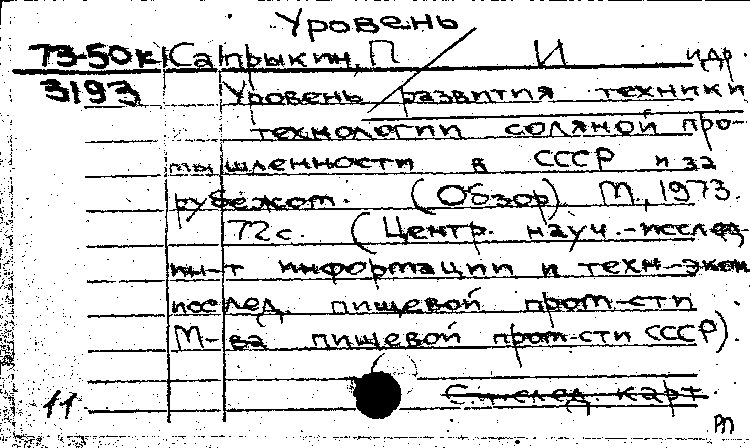 Уровень
73-50к Сапрыкин, П И и др.
3193 Уровень развития техники
технологии соляной про-
мышленности в СССР и за
рубежом. (Обзор). М., 1973.
72с. (Центр. науч.-исслед.
ин-т информации и техн-экон
исслед. пищевой пром-сти
М-ва пищевой пром-сти СССР).
См.след. карт.
11